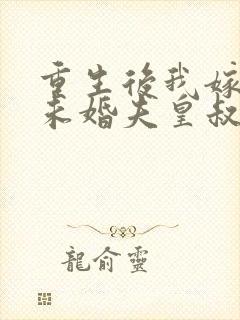 重生後我嫁
未婚夫皇叔
龍俞靈